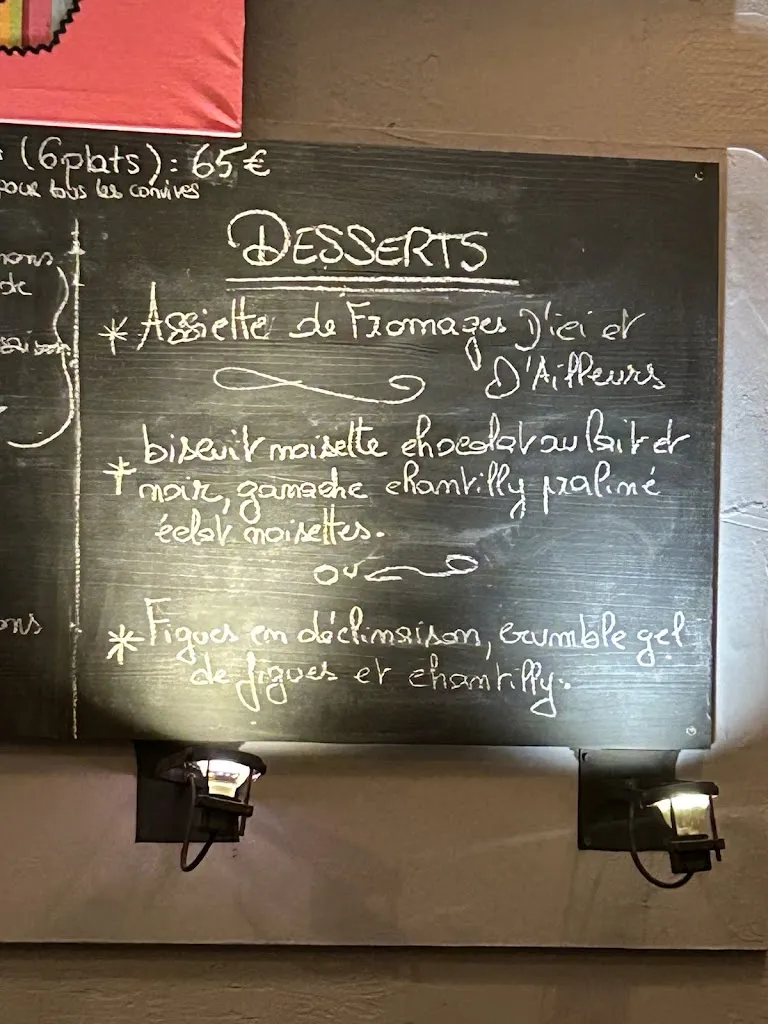 (6 plats) : 65€
pour tous les convives
DESSERTS
* Assiette de Fromages D'ici et
D'Ailleurs
biscuit noisette chocolat au lait et
* noir, ganache chantilly praliné
éclat noisettes.
ou
* Figues en déclinaison, crumble gel
de figues et chantilly.